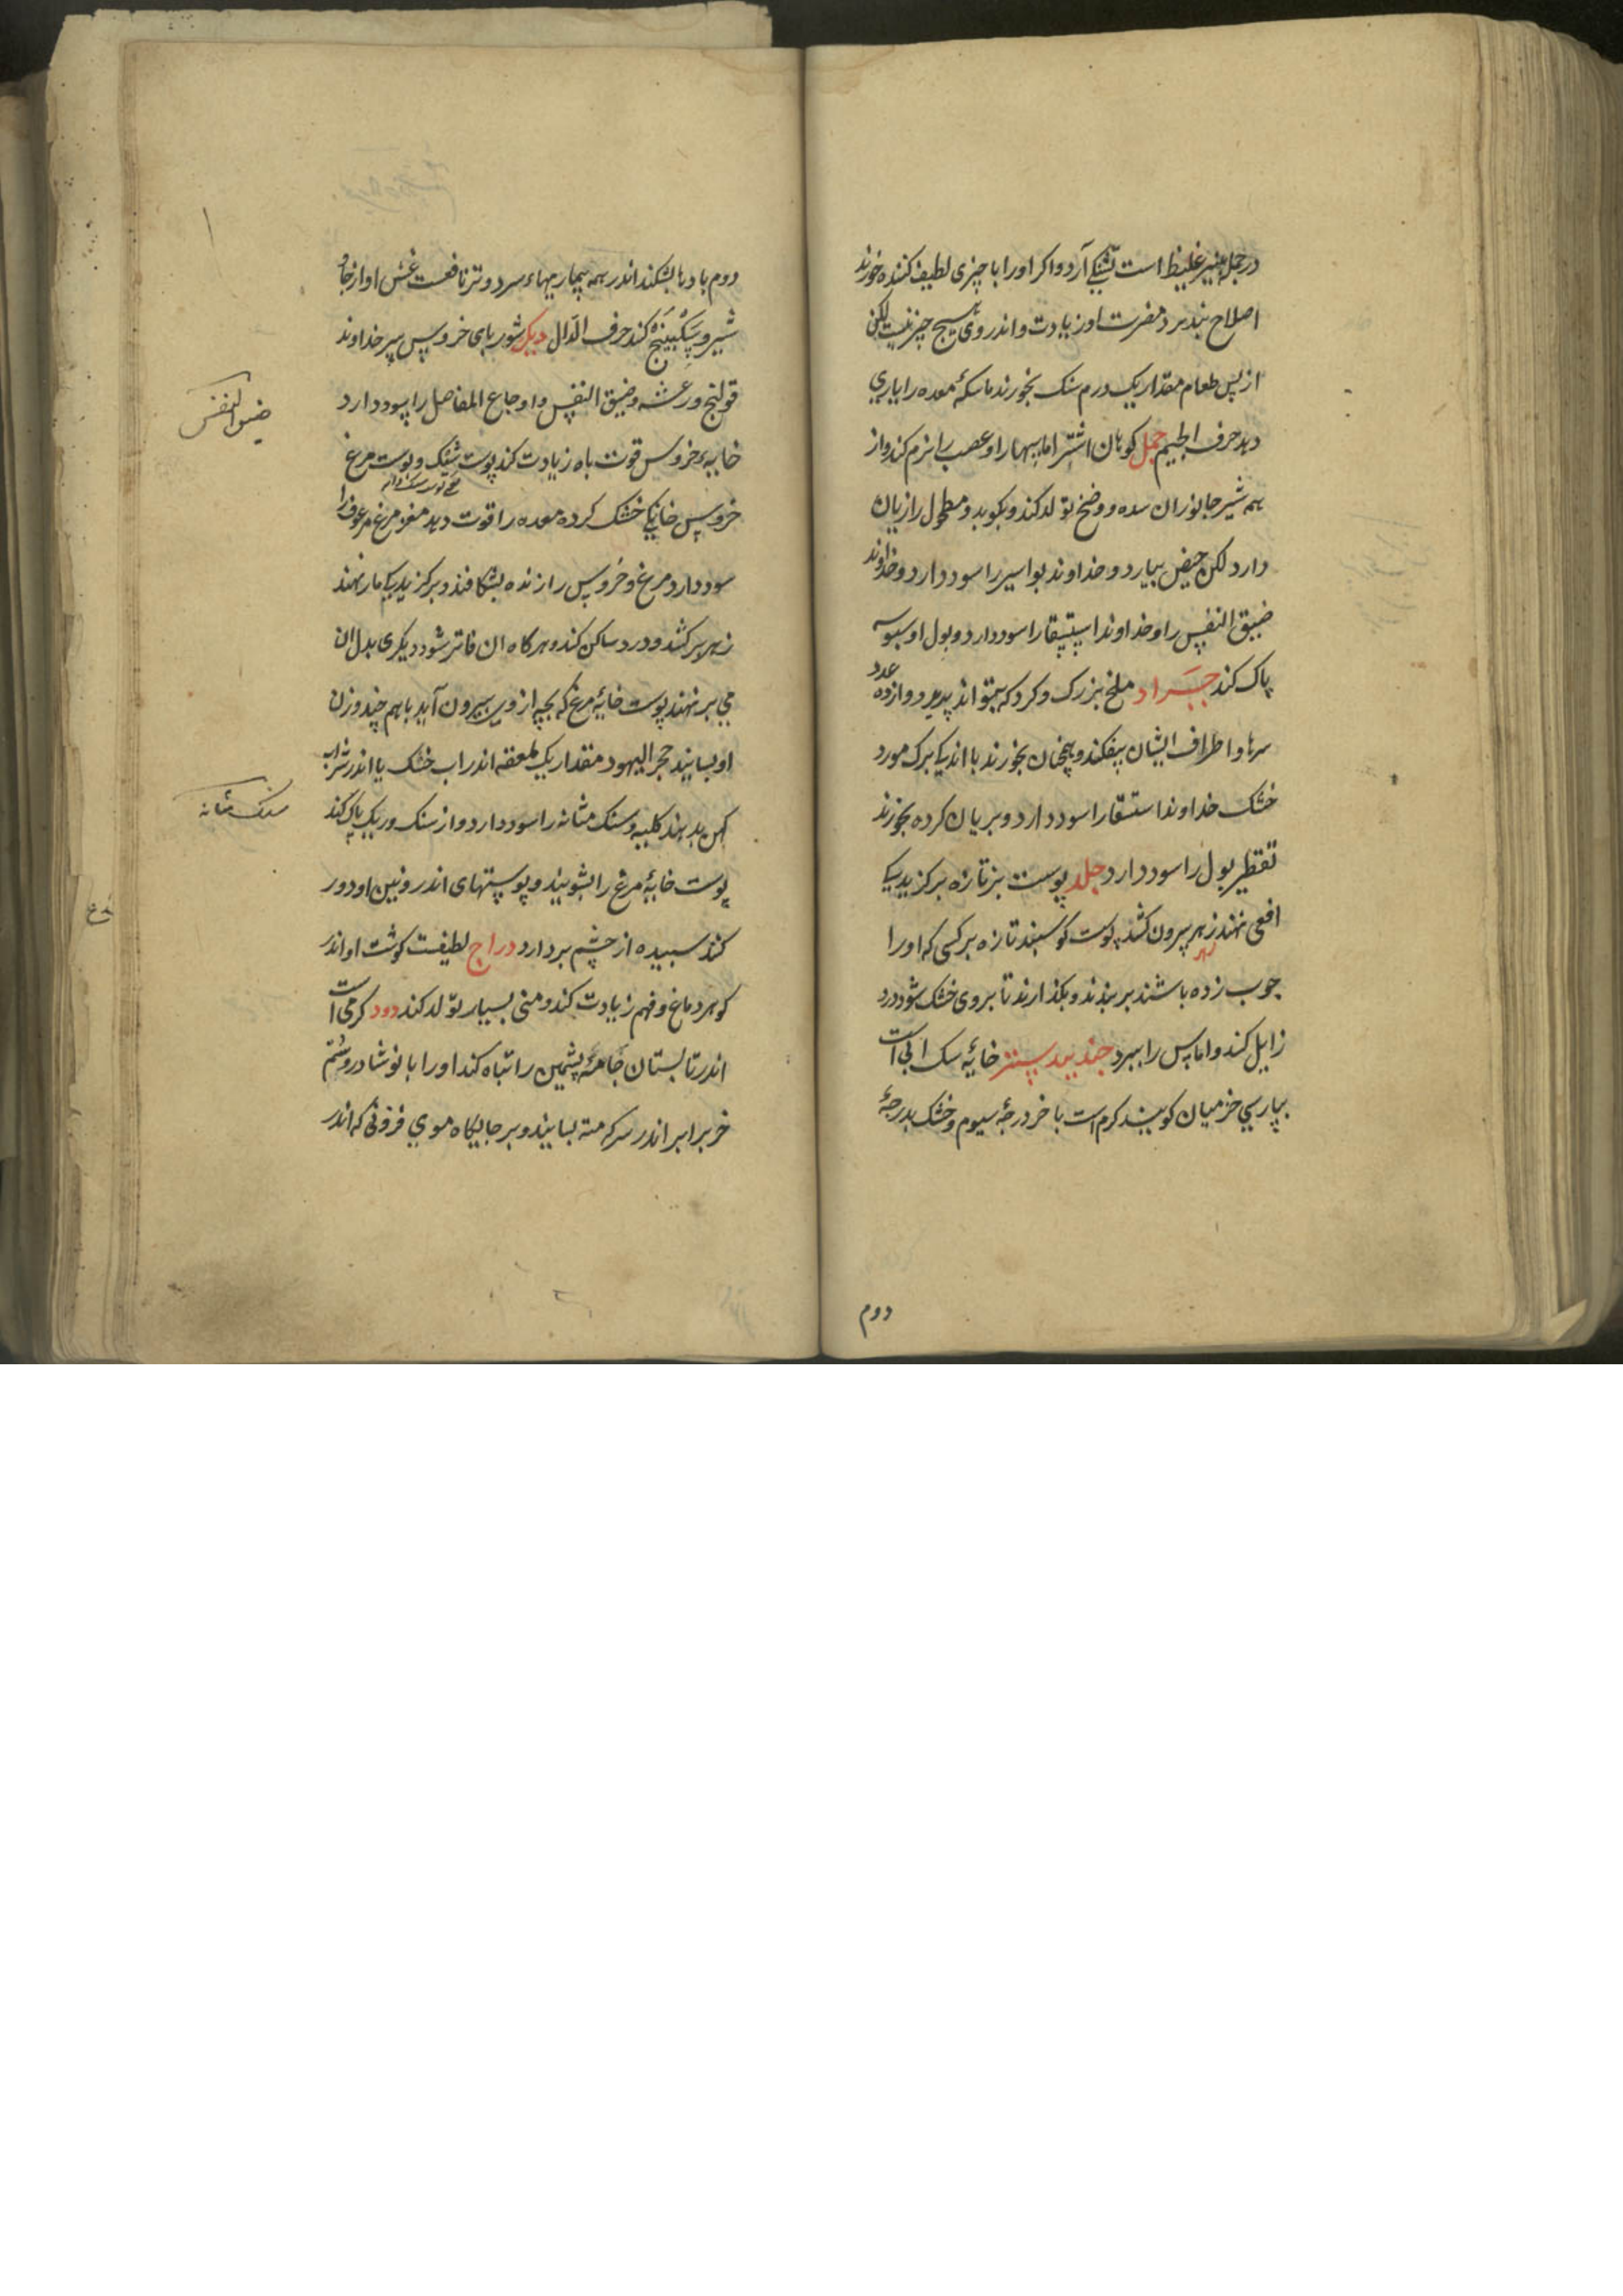 در جمله پنیر غلیظ است تشنکی آرد و اکر او را با چیزی لطیف کننده خورند
اصلاح نپذیرد مضرت او زیادت و اندر وی هیچ چیز نیست لکن
از پس طعام مقدار یک درم سنک بخورند ماسکهٔ معده را یاری
دهد حرف الجیم جمل کوهان اشتر اماسهها را و عصب را نرم کند و از
همه شیر جانوران سده و وضح تولد کند و بکوبد و مطحول را زیان
دارد لکن حیض بیارد و خداوند بواسیر را سود دارد و خداوند
ضیق النفس را و خداوند استسقا را سود دارد و بول او سبوسه
پاک کند جراد ملخ بزرک و کرد که بتواند پرید دوازده عدد
سرها و اطراف ایشان بیفکند و همچنان بخورند با اندکی برک مورد
خشک خداوند استسقا را سود دارد و بریان کرده بخورند
تقطیر بول را سود دارد جلد پوست بز تازه بر کزیدکی
افعی نهند زهر بیرون کشد پوست کوسبند تازه بر کسی که او را
زهر
چوب زده باشند بر بندند و بکذارند تا بروی خشک شود درد
زایل کند و اماس را ببرد جندبیدستر خایهٔ سک ابی است
بپارسی خزمیان کویند کرم است باخر درجهٔ سیوم و خشک بدرجهٔ
دوم
دوم بادها بشکند اندر همه بیماریهاء سرد و تر نافعست غش او از جاو
شیر و سکبینج کند حرف الدال دیک شوربای خروس پیر خداوند
قولنج و رعشه و ضیق النفس و اوجاع المفاصل را سود دارد
ضیق النفس
خایهء خروس قوت باه زیادت کند پوست شفک و پوست مرغ
خروس خانکی خشک کرده معده را قوت دهد مغز مرغ مرعوف را
سود دارد مرغ و خروس را زنده بشکافند و بر کزیدیکی مار نهند
زهر بر کشد و درد ساکن کند و هر کاه ان فاتر شود دیکری بدل ان
می بر نهند پوست خایهٔ مرغ که بچه از وی بیرون آید با هم چند وزن
او بسایند حجر الیهود مقدار یک ملعقه اندر اب خشک یا اندر شراب
سنک مثانه
کهن بدهند کلیه و سنک مثانه را سود دارد و از سنک و ریک پاک کند
پوست خایهٔ مرغ را بشویند و پوستهای اندرونین او دور
کنند سبیده از چشم بردارد دراج لطیفست کوشت او اندر
کوهر دماغ و فهم زیادت کند و منی بسیار تولد کند دود کرمی است
اندر تابستان جامهٔ پشمین را تباه کند او را با نوشادر و شتم
خر برابر اندر سرکه مسته بسایند و بر جایکاه موی فزونی که اندر